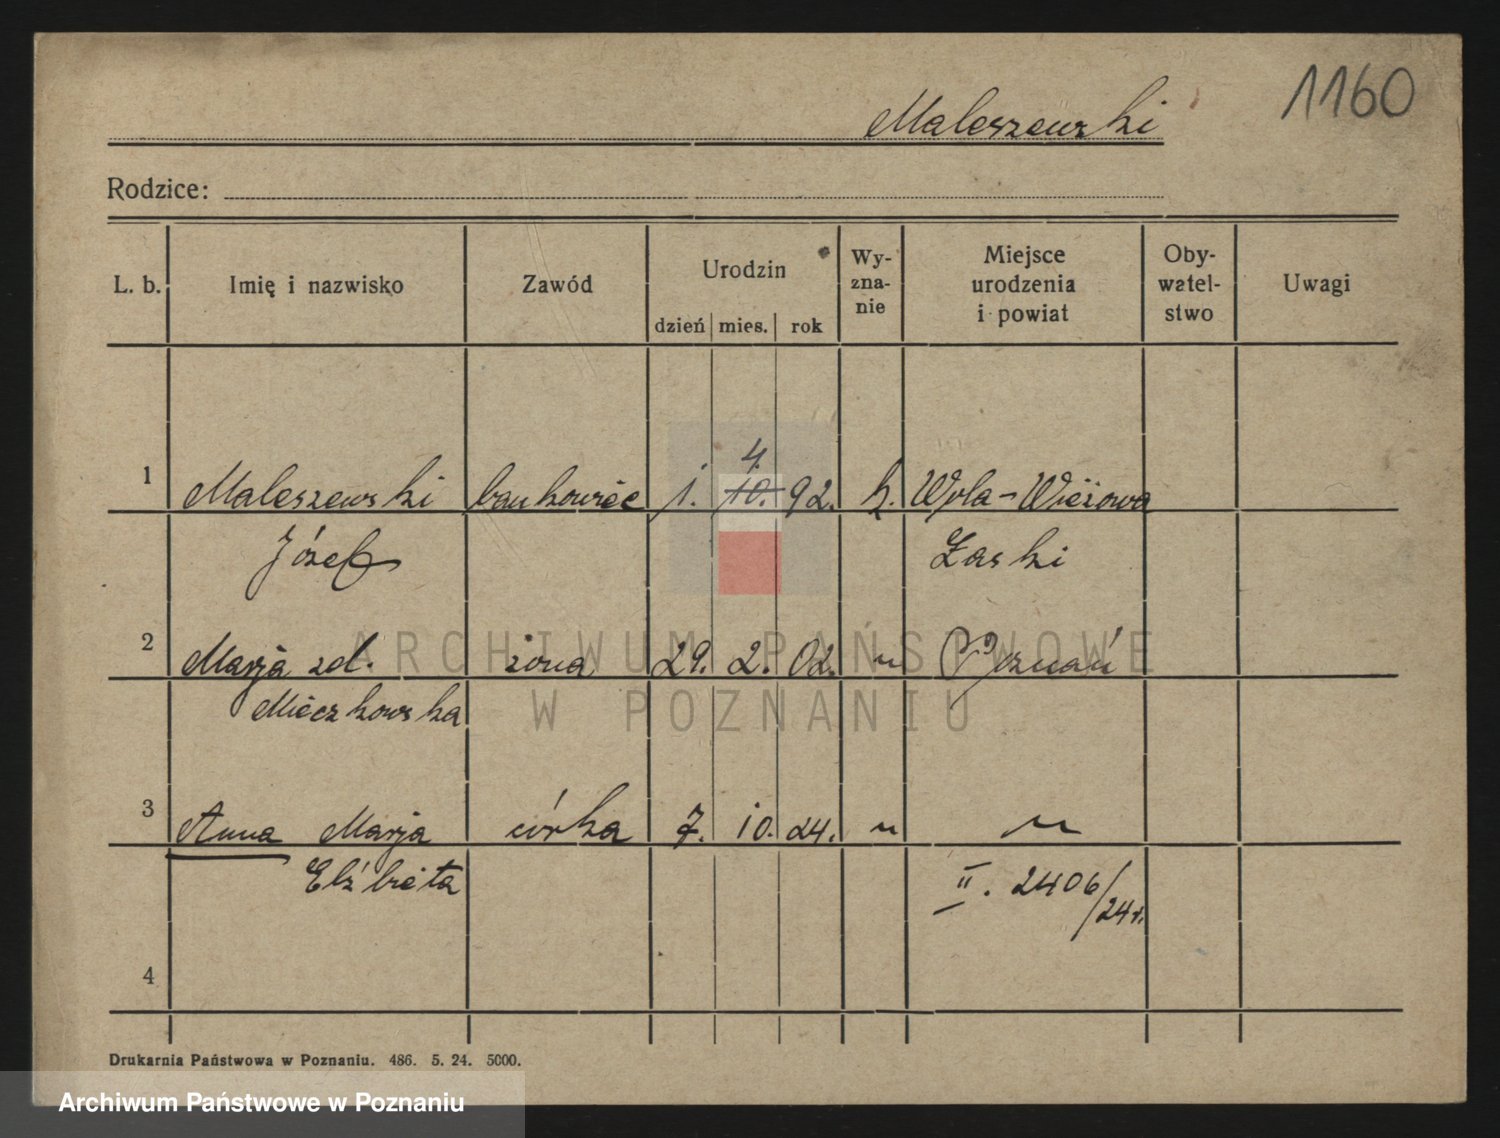 1160
Maleszewski
Rodzice:
L. b. Imię i nazwisko Zawód Urodzin dzień mies. rok Wy-zna-nie Miejsce urodzenia i powiat Oby-watel-stwo Uwagi
4.
1 Maleszewski bankowiec 1. 10. 92. k. Wola-Więżowa
Józef Łaski
2 Marja zd. żona 29. 2. 02. " Poznań
Mieczkowska
3 Anna Marja córka 7. 10. 24. " "
Elżbieta II. 2406/24r.
4
Drukarnia Państwowa w Poznaniu. 486. 5. 24. 5000.
ARCHIWUM PAŃSTWOWE
W POZNANIU
Archiwum Państwowe w Poznaniu